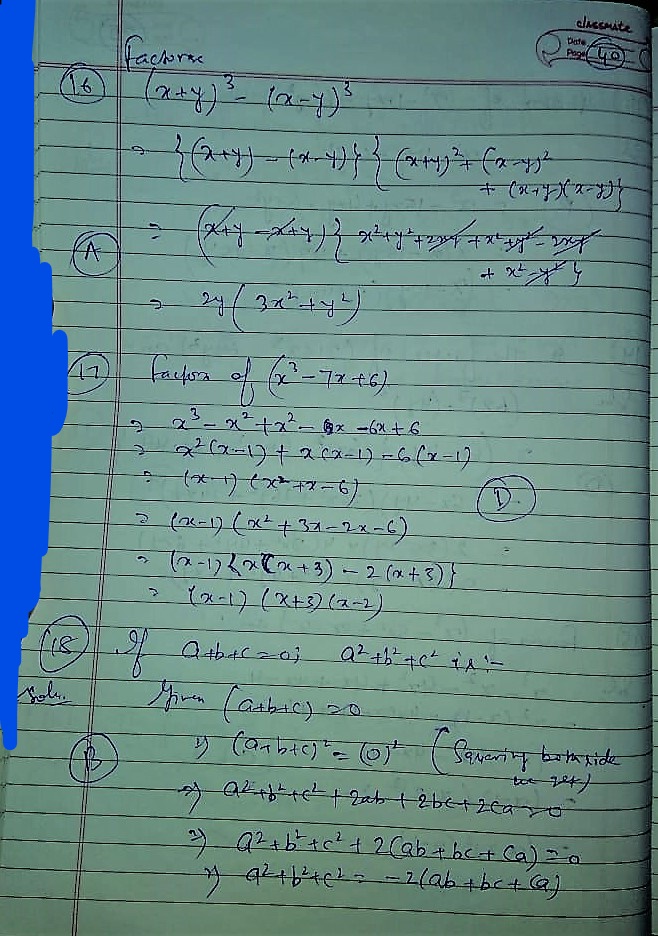 classmate
Date
Page 40
Factorise
16 (x+y)³ - (x-y)³
⇒ {(x+y) - (x-y)} { (x+y)² + (x-y)²
+ (x+y)(x-y)}
A
= (x+y -x+y) { x²+y²+2xy +x²+y²-2xy
+ x²-y² }
⇒ 2y ( 3x² + y²)
17 factors of (x³-7x+6)
⇒ x³ - x² + x² - x -6x + 6
⇒ x²(x-1) + x(x-1) -6(x-1)
⇒ (x-1) (x²+x-6)
D.
⇒ (x-1) (x² + 3x - 2x - 6)
⇒ (x-1) {x(x+3) - 2(x+3)}
⇒ (x-1) (x+3) (x-2)
18 If a+b+c=0; a²+b²+c² is :-
Soln. Given (a+b+c) = 0
B
⇒ (a+b+c)² = (0)² (Squaring both side
we get)
⇒ a²+b²+c² + 2ab + 2bc + 2ca = 0
⇒ a²+b²+c² + 2(ab+bc+ca) = 0
⇒ a²+b²+c² = -2(ab+bc+ca)